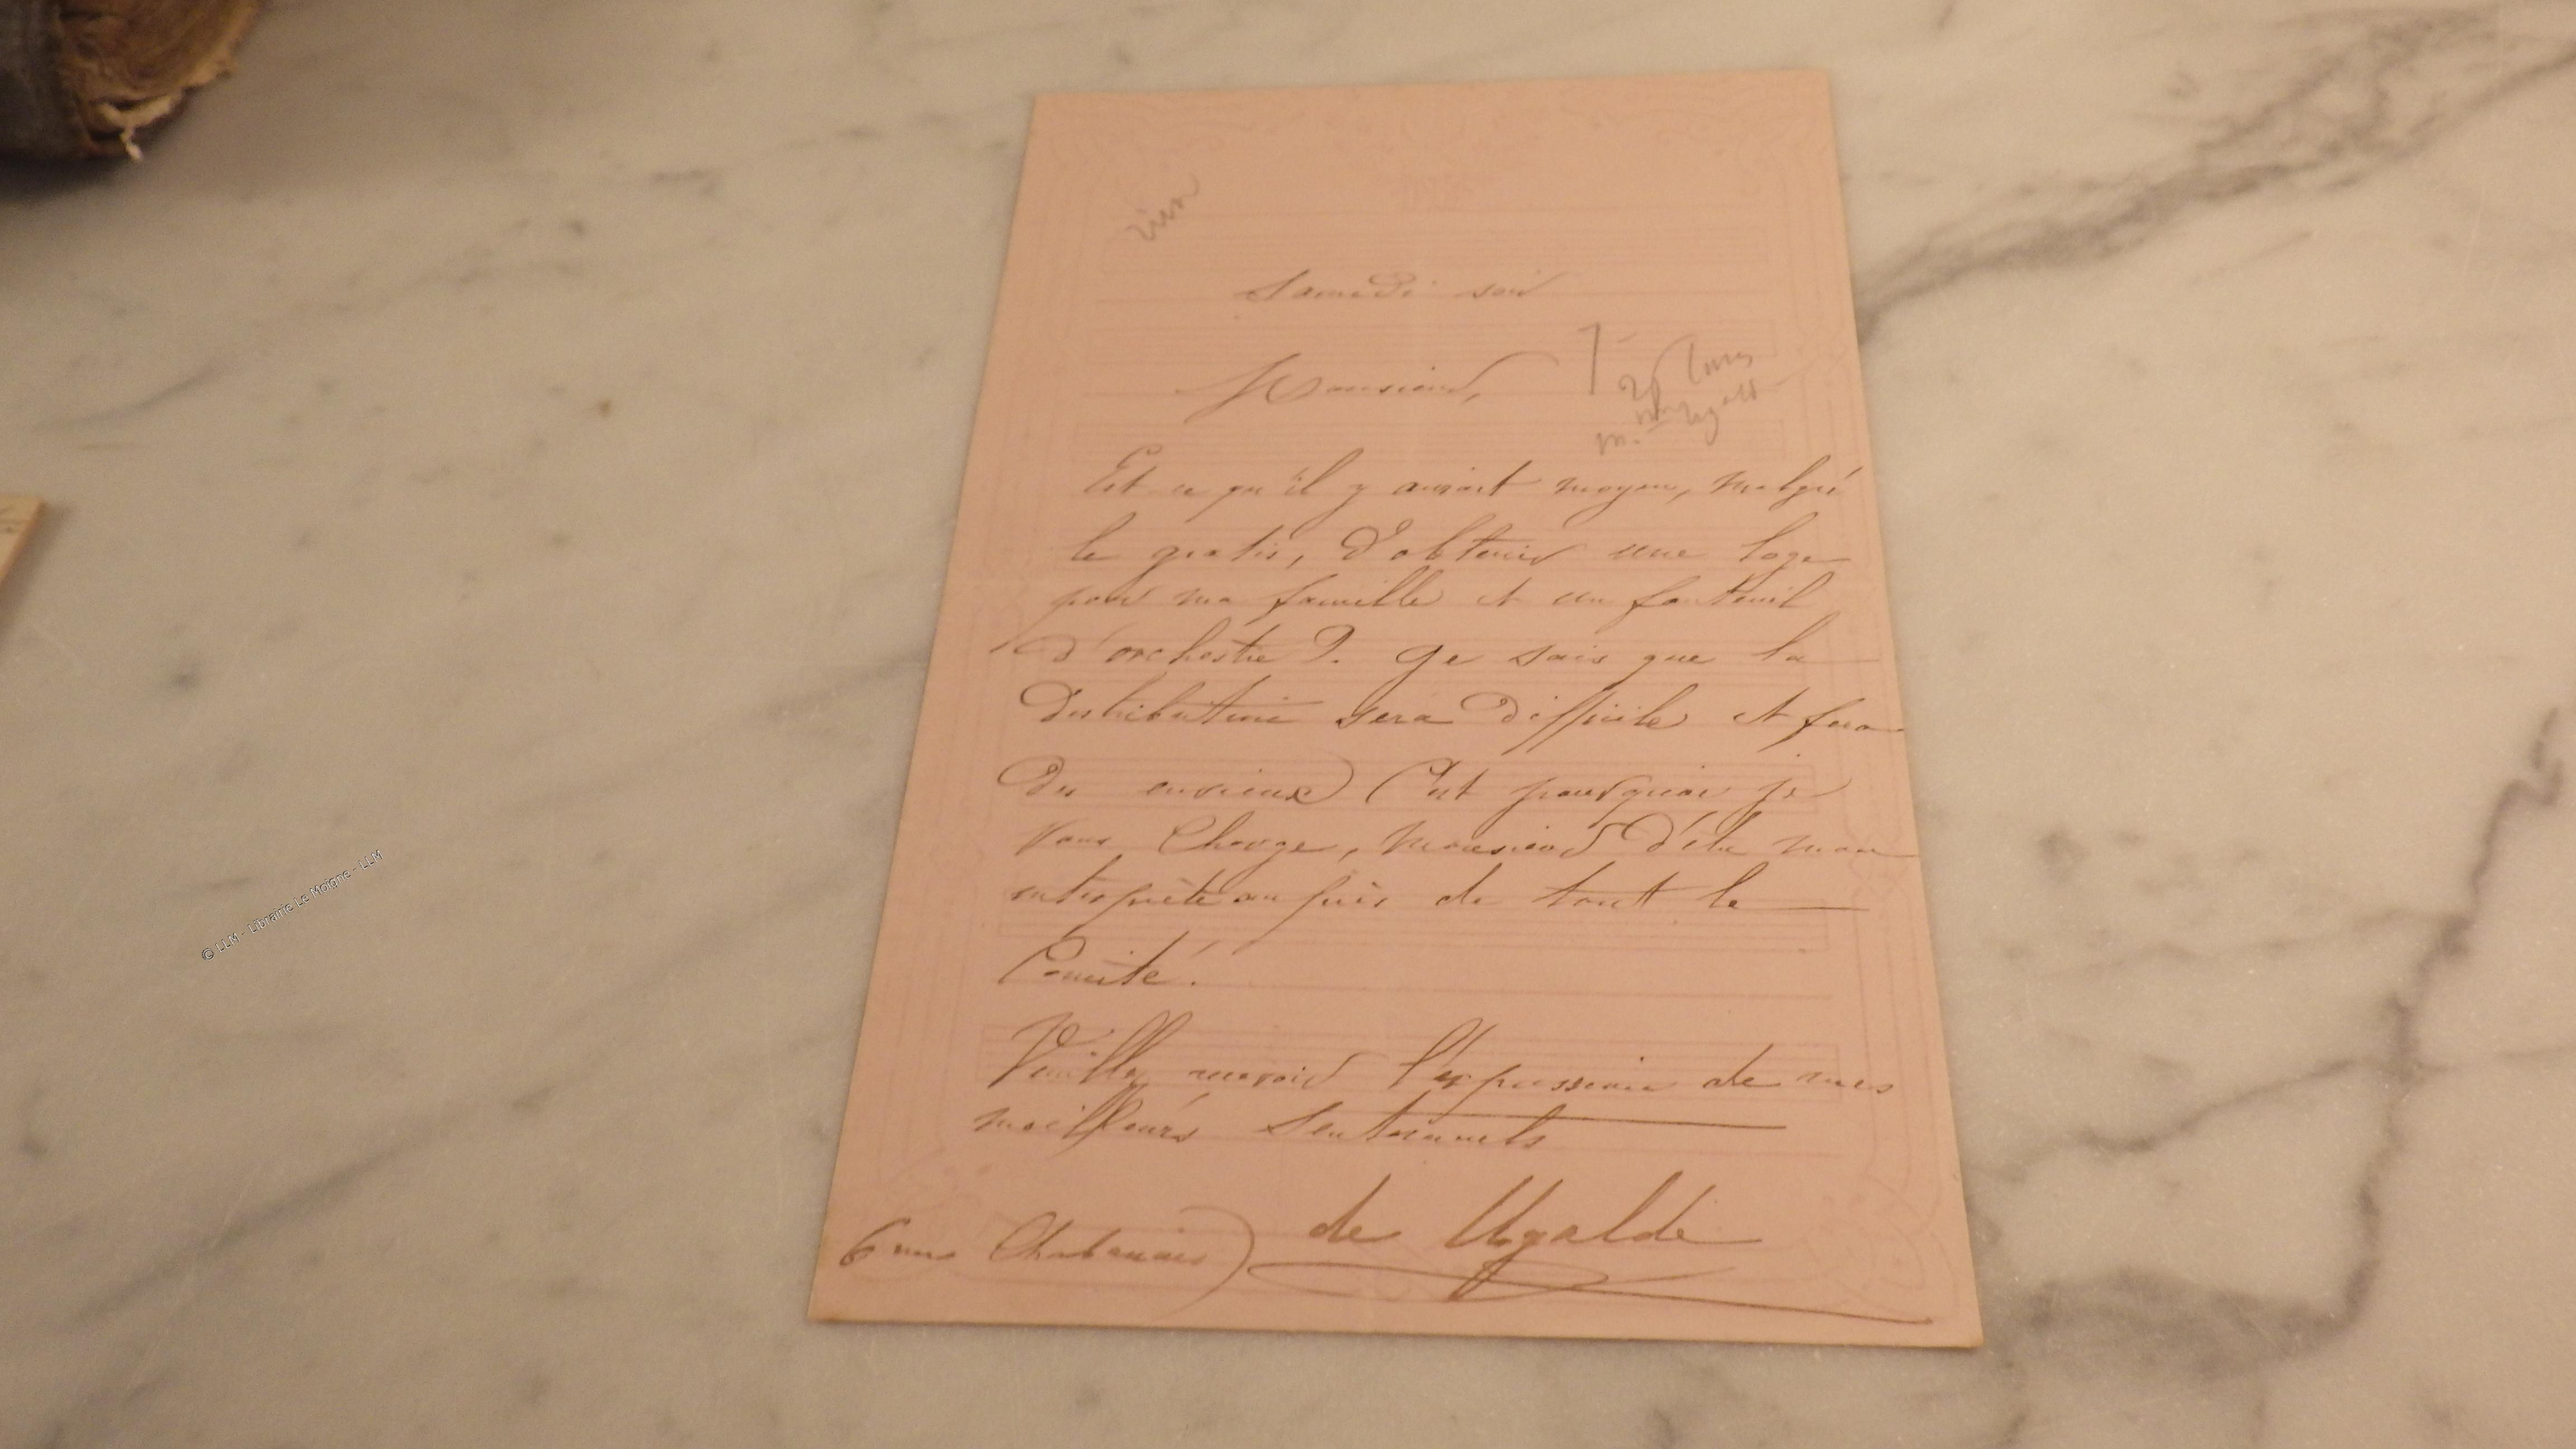 Samedi soir
Monsieur,
Est ce qu'il y aurait moyen, malgré
le gratis, d'obtenir une loge
pour ma famille et un fauteuil
d'orchestre ?. Je sais que la
distribution sera difficile et fera
des envieux C'est pourquoi je
vous charge, monsieur d'être mon
interprète auprès de tout le
Comité.
Veuillez recevoir l'expression de mes
meilleurs sentiments
de Ugalde
6 rue Chabanais
© LLM - Librairie Le Moigne - LLM